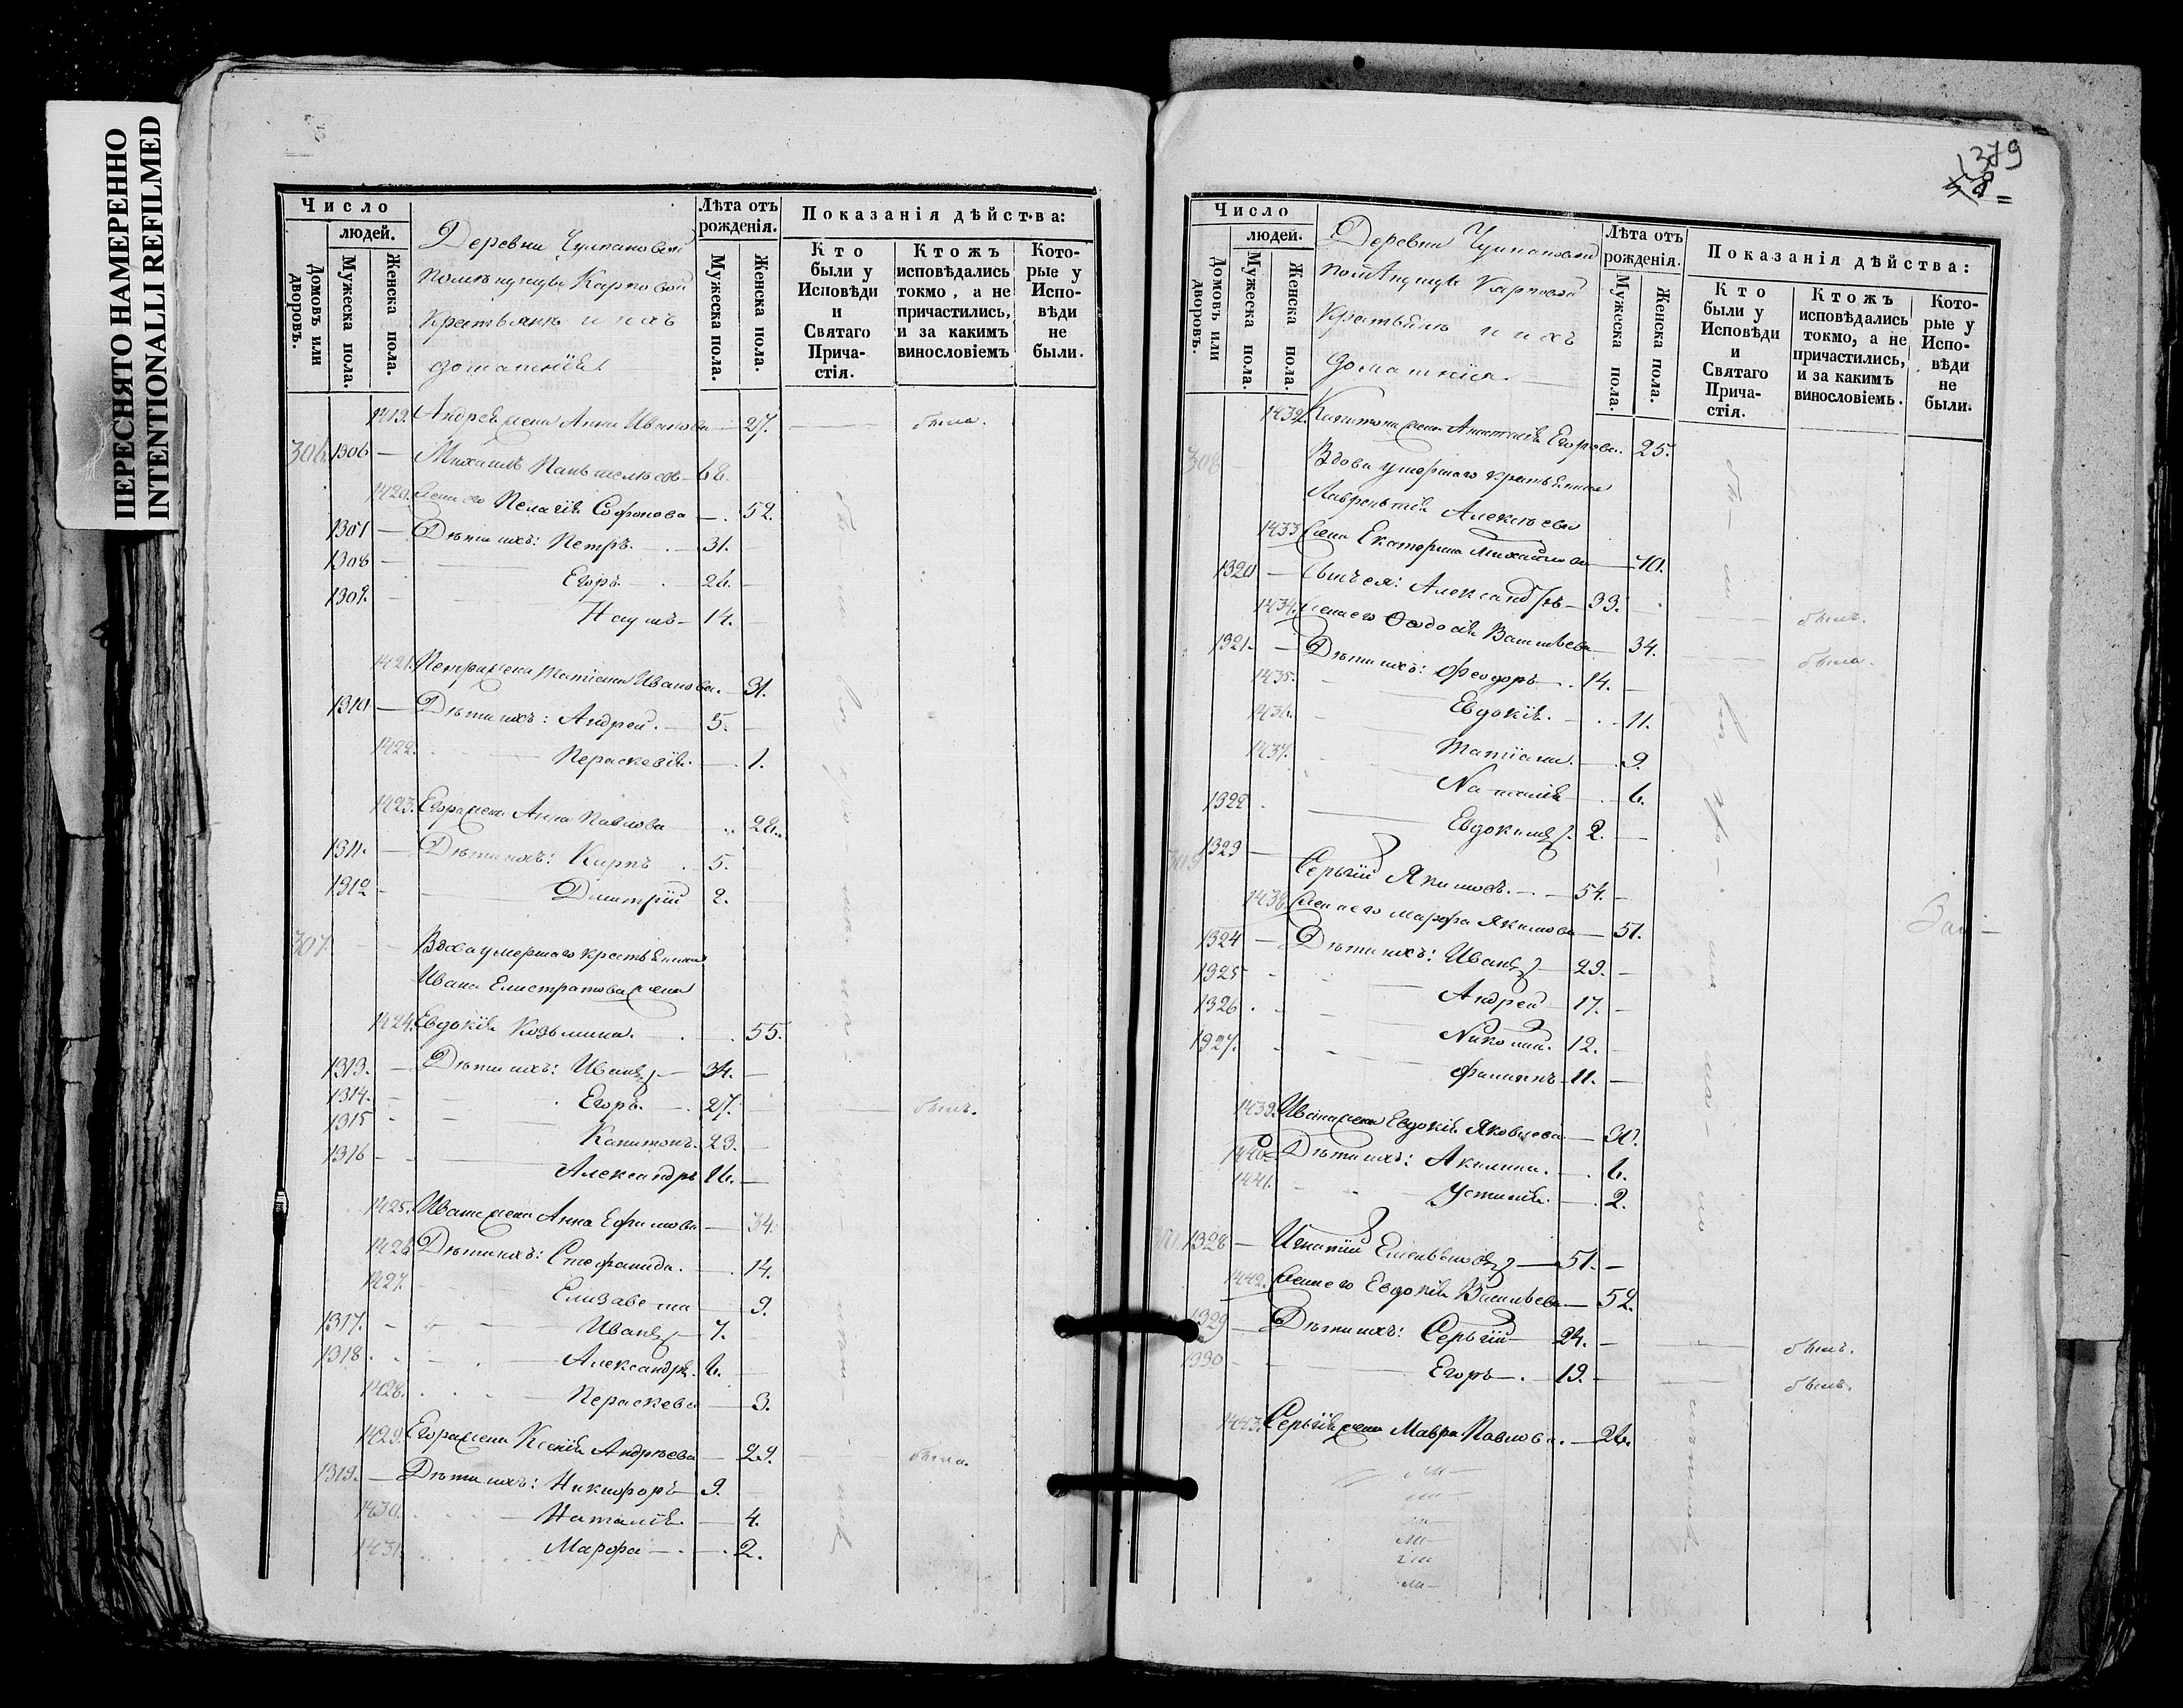 ПЕРЕСНЯТО НАМЕРЕННО
INTENTIONALLI REFILMED
Число
людей.
Домовъ или дворовъ.
Мужеска пола.
Женска пола.
Деревни Чулпановой
помѣщицы Карповой
Крестьяне и ихъ
домашнія.
Лѣта отъ рожденія.
Мужеска пола.
Женска пола.
Показанія дѣйства:
Кто были у Исповѣди и Святаго Прича-стія.
Ктожъ исповѣдались токмо, а не причастились, и за какимъ винословіемъ
Кото-рые у Испо-вѣди не были.
1419. Андрея жена Анна Иванова — 27. была.
306. 1306 — Михаилъ 68.
1420. Жена его Пелагія Софонова — 52.
1307 — Дѣти ихъ: Петръ. 31.
1308 — Егоръ. 26.
1309. Наумъ 14.
1421. Петра жена Татіана Иванова. 31.
1310 — Дѣти ихъ: Андрей. 5.
1422. Пераскевія. 1.
1423. Егора жена Анна Павлова 26.
1311. — Дѣти ихъ: Карпъ 5.
1312 — Дмитрій 2.
307. Вдова умершаго крестьянина
Ивана Елистратова жена
1424. Евдокія Козьмина. 55.
1313. — Дѣти ихъ: Иванъ 34.
1314. Егоръ. 27. былъ.
1315 Капитонъ. 23.
1316 Александръ 16.
1425. Ивана жена Анна Ефимова 34.
1426. Дѣти ихъ: Стефанида. 14.
1427. Елизавета 9.
1317. Иванъ 7.
1318. Александръ. 6.
1428. Пераскева 3.
1429. Егора жена Ксенія Андреева 29. была.
1319. — Дѣти ихъ: Никифоръ 9.
1430. Наталія. 4.
1431. Марфа 2.
1379
Число
людей.
Домовъ или дворовъ.
Мужеска пола.
Женска пола.
Деревни Чулпановой
помѣщицы Карповой
Крестьяне и ихъ
домашнія.
Лѣта отъ рожденія.
Мужеска пола.
Женска пола.
Показанія дѣйства:
Кто были у Исповѣди и Святаго Прича-стія.
Ктожъ исповѣдались токмо, а не причастились, и за какимъ винословіемъ.
Кото-рые у Испо-вѣди не были.
1432. Капитона жена Анастасія Егорова. 25.
308 Вдова умершаго крестьянина
Лаврентія Алексѣева
1433 Жена Екатерина Михайлова 70.
1320 — Сынъ ея: Александръ 33. былъ.
1434. Жена его Ѳеодосія Васильева 34. была.
1321 — Дѣти ихъ: Феодоръ 14.
1435. Евдокія. 11.
1436. Татіана. 9.
1437. Наталія 6.
1322 Евдокимъ. 2.
309 1323 — Сергій Якимовъ. 54.
1438. Жена его Марфа Якимова 51.
1324 — Дѣти ихъ: Иванъ 29.
1325 Андрей 17.
1326 Николай. 12.
1327. Филиппъ 11.
1439. Ивана жена Евдокія Яковлева 30.
1440. Дѣти ихъ: Акилина. 6.
1441. Устинія. 2.
1328 — Игнатій Емельяновъ 51.
1442. Жена его Евдокія Васильева 52.
1329 — Дѣти ихъ: Сергій 24. былъ.
1330 Егоръ 19. былъ.
1443. Сергія жена Мавра Павлова. 26.